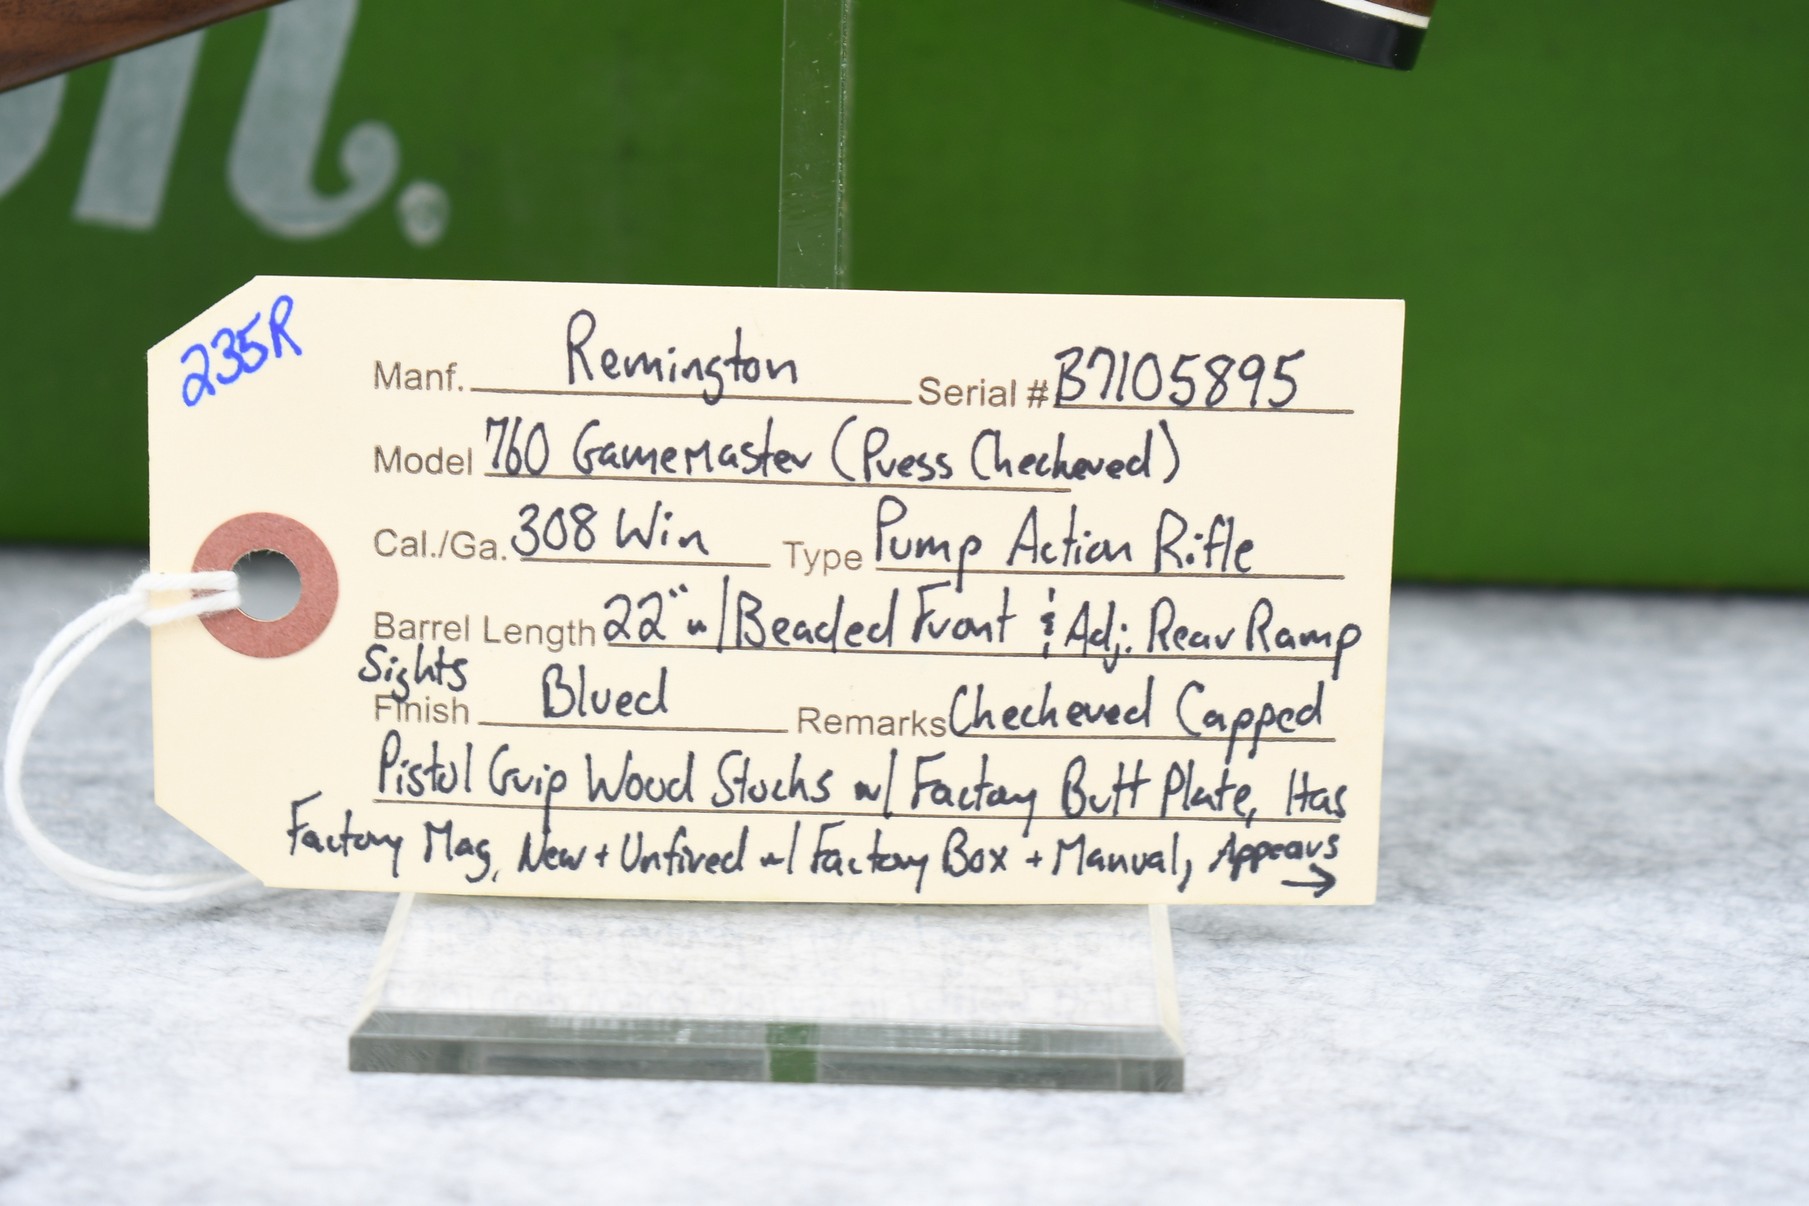 n.
235R
Manf. Remington Serial # B7105895
Model 760 Gamemaster (Press Checkered)
Cal./Ga. 308 Win Type Pump Action Rifle
Barrel Length 22" w/ Beaded Front & Adj. Rear Ramp
Sights
Finish Blued Remarks Checkered Capped
Pistol Grip Wood Stocks w/ Factory Butt Plate, Has
Factory Mag, New + Unfired w/ Factory Box + Manual, Appears
→